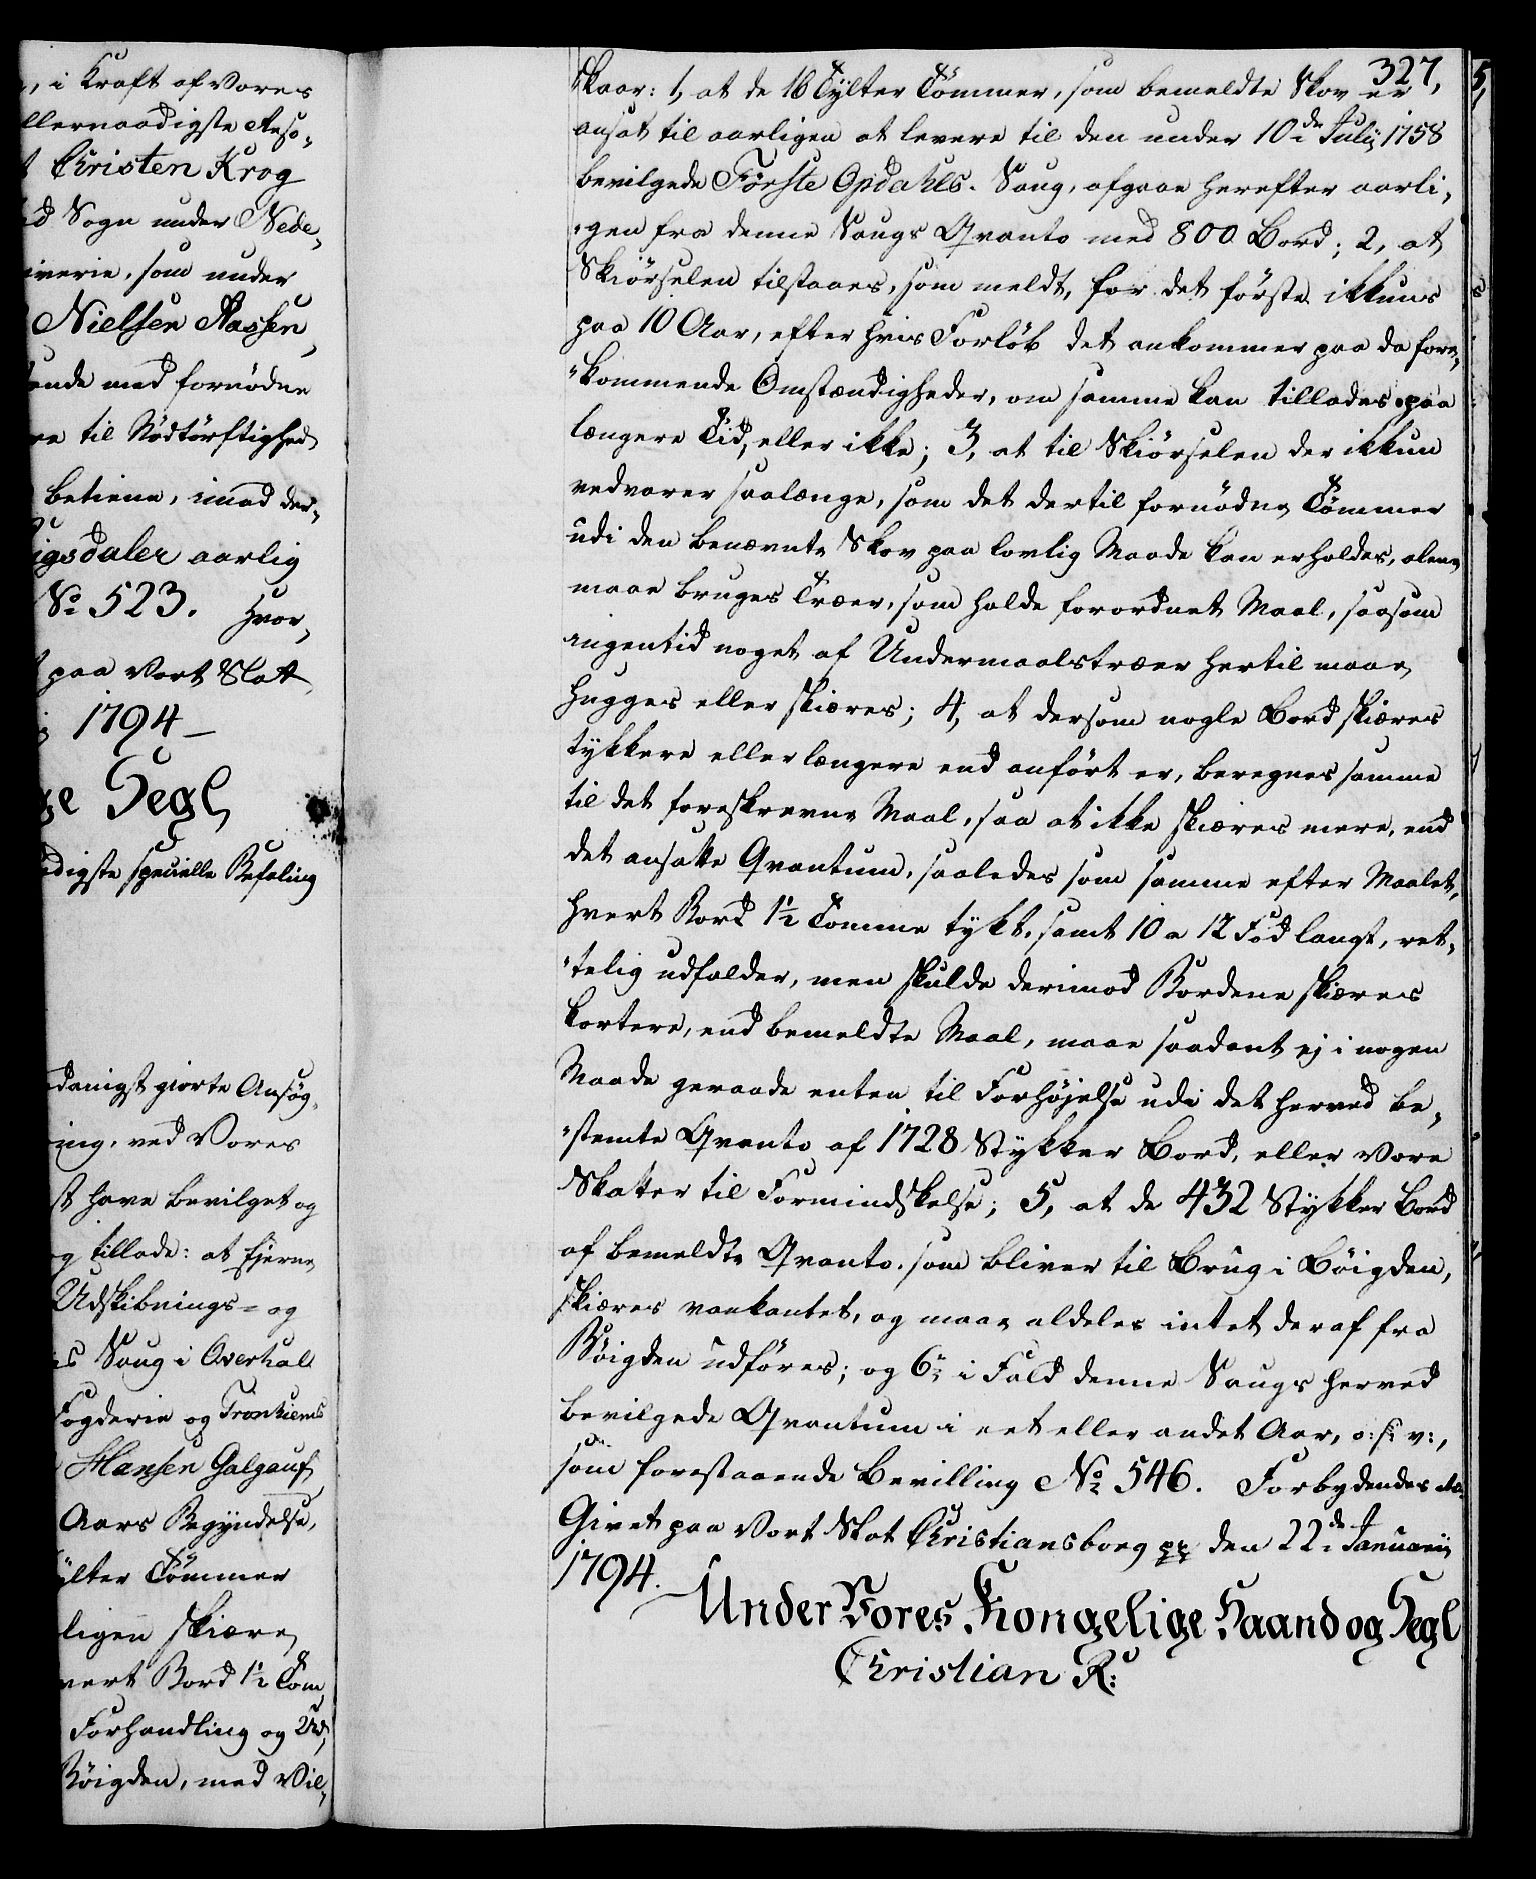 , i Kraft af Vores
llernaadigste Reso-
Christen Krog
d Sogn under Nede-
iverie, som under
Nielsen Aassen
ende med fornödne
re til Nödtörftighed
betiene, imod der-
igsdaler aarlig
No 523. Hvor-
paa Vort Slot
1794 –
ge Segl
digste specielle Befaling
danigst giorte Ansög-
ing, ved Vores
st have bevilget og
g tillade: at hjerne
Udskibnings- og
is Saug i Overhal
Fogderie og Tronhiems
Hansen Galgauf
Aars Begyndelse,
ylter Tömmer
ligen skiære
vert Bord 1½ Tom
Forhandling og Ud-
Böigden, med Vil-
327,
skaar: 1, at de 16 Tylter Tömmer, som bemeldte Skov er
ansat til aarligen at levere til den under 10de Julij 1758
bevilgede Förste Opdahls-Saug, afgaae herefter aarli-
-gen fra denne Saugs Qvanto med 800 Bord; 2, at
Skiörselen tilstaaes, som meldt, for det förste ikkuns
paa 10 Aar, efter hvis Forlöb det ankommer paa da fore-
-kommende Omstændigheder, om samme kan tillades paa
længere Tid, eller ikke; 3, at til Skiörselen der ikkun
vedvarer saalænge, som det dertil fornödne Tömmer
udi den benævnte Skov paa lovlig Maade kan erholdes, alene
maae bruges Træer, som holde forordnet Maal, saasom
ingentid noget af Undermaalstræer hertil maae
hugges eller skiæres; 4, at dersom nogle Bord skiæres
tykkere eller længere end anfört er, beregnes samme
til det foreskrevne Maal, saa at ikke skiæres mere, end
det ansatte Qvantum, saaledes som samme efter Maalet,
hvert Bord 1½ Tomme tykt, samt 10 a 12 Fod langt, ret-
-telig udfalder, men skulde derimod Bordene skiæres
kortere, end bemeldte Maal, maae saadant ej i nogen
Maade geraade enten til Forhöjelse udi det herved be-
-stemte Qvanto af 1728 Stykker Bord, eller Vore
Skatter til Formindskelse; 5, at de 432 Stykker Bord
af bemeldte Qvanto, som bliver til Brug i Böigden,
skiæres vankantet, og maae aldeles intet deraf fra
Böigden udföres; og 6, i Fald denne Saugs herved
bevilgede Qvantum i eet eller andet Aar, o: s: v:,
som forestaaende Bevilling No 546. Forbydendes etc.
Givet paa Vort Slot Christiansborg pp den 22de Januarii
1794.
Under Vores Kongelige Haand og Segl
Christian R: